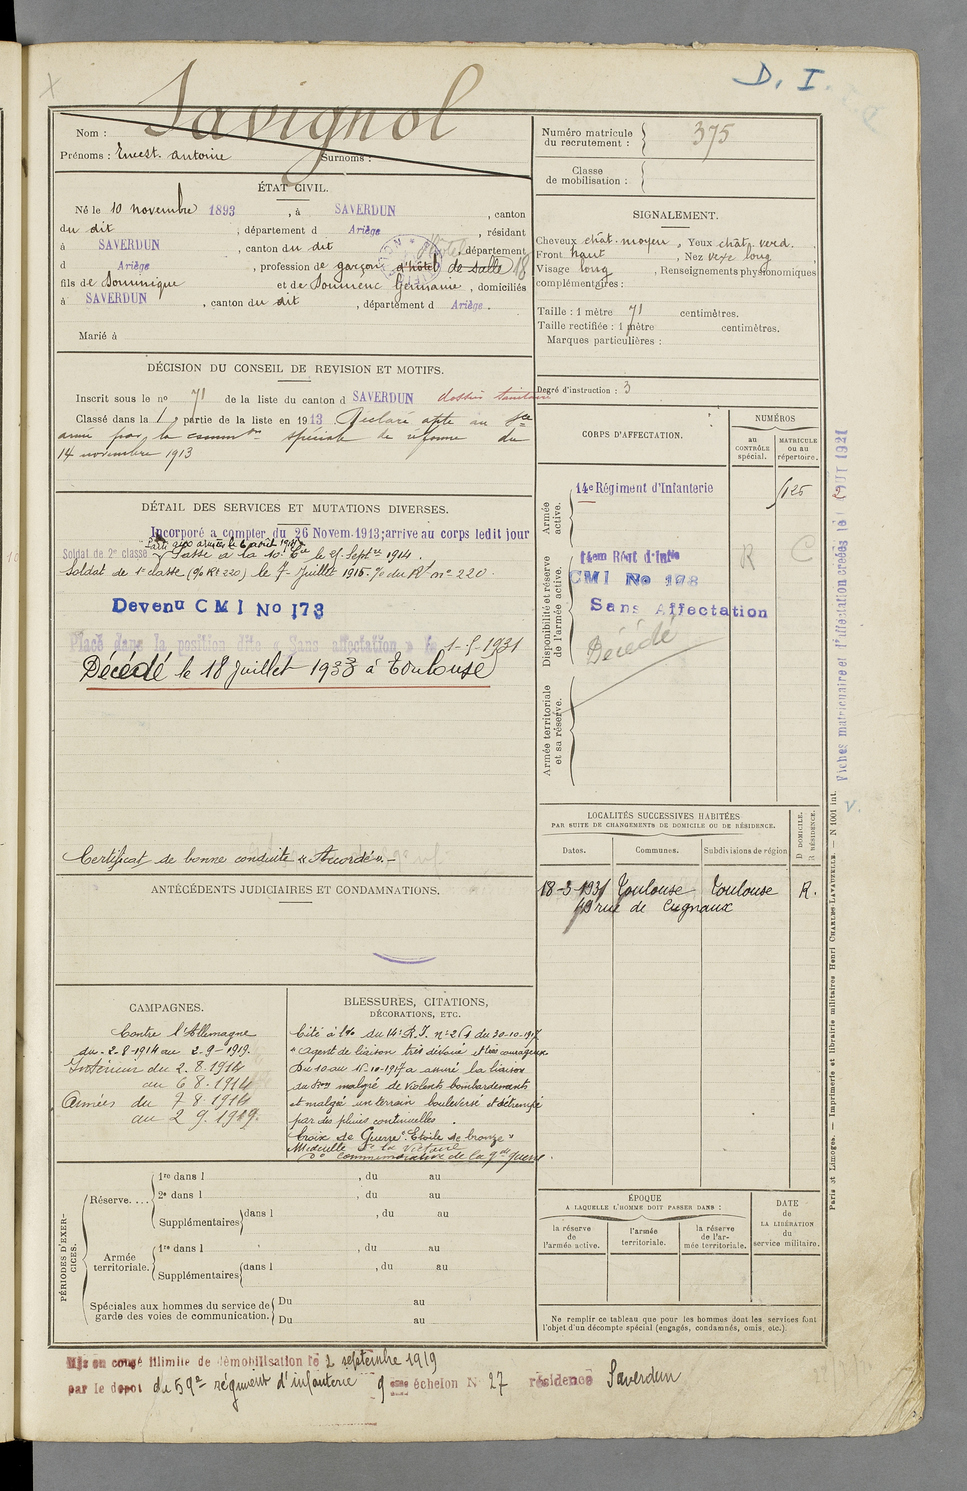 D. I.
Savignol
Nom :
Prénoms : Ernest. antoine Surnoms :
Numéro matricule du recrutement : 375
Classe de mobilisation :
ÉTAT CIVIL.
Né le 10 novembre 1893, à SAVERDUN, canton
du dit ; département d Ariège, résidant
à SAVERDUN, canton du dit, département
d Ariège, profession de garçon d'hôtel de salle 18
fils de Dominique et de Germaine, domiciliés
à SAVERDUN, canton du dit, département d Ariège.
Marié à
SIGNALEMENT.
Cheveux chât. moyen, Yeux chât. verd.
Front haut, Nez vexe long
Visage long, Renseignements physionomiques
complémentaires :
Taille : 1 mètre 71 centimètres.
Taille rectifiée : 1 mètre centimètres.
Marques particulières :
Degré d'instruction : 3
DÉCISION DU CONSEIL DE REVISION ET MOTIFS.
Inscrit sous le no 71 de la liste du canton d SAVERDUN dossier sanitaire
Classé dans la 1 partie de la liste en 1913 Déclaré apte au sce
armé par la commion spéciale de réforme du
14 novembre 1913
DÉTAIL DES SERVICES ET MUTATIONS DIVERSES.
Incorporé a compter du 26 Novem. 1913; arrive au corps ledit jour
Parti aux armées le 6 août 1914
Soldat de 2e classe Passé à la 10e Cie le 21 Septre 1914.
Soldat de 1e classe (% Rt 220) le 7 Juillet 1916. % du Rt no 220
Devenu CMI No 173
Placé dans la position dite « Sans affectation » le 1-5-1931
Décédé le 18 Juillet 1933 à Toulouse
Certificat de bonne conduite « Accordé ». —
CORPS D'AFFECTATION.
NUMÉROS
au CONTRÔLE spécial.
MATRICULE ou au répertoire.
Armée active.
14e Régiment d'Infanterie
Disponibilité et réserve de l'armée active.
14em Régt d'Infie
CMI No 173
Sans Affectation
Décédé
R C
Armée territoriale et sa réserve.
LOCALITÉS SUCCESSIVES HABITÉES
PAR SUITE DE CHANGEMENTS DE DOMICILE OU DE RÉSIDENCE.
D DOMICILE. R RÉSIDENCE.
Dates. Communes. Subdivisions de région
18-3-1931 Toulouse Toulouse R.
rue de Cugnaux
ANTÉCÉDENTS JUDICIAIRES ET CONDAMNATIONS.
CAMPAGNES.
Contre l'Allemagne
du 2-8-1914 au 2-9-1919.
Intérieur du 2.8.1914
au 6 8.1914
Armées du 7 8.1914
au 2 9.1919.
BLESSURES, CITATIONS,
DÉCORATIONS, ETC.
Cité à l'o/o du 14e R.I. du 30-10-1917
"agent de liaison très dévoué et très courageux
Du 10 au 15.10.1917 a assuré la liaison
malgré de violents bombardements
et malgré un terrain bouleversé et détrempé
par des pluies continuelles.
Croix de Guerre "Etoile de bronze"
Médaille de la Victoire
do commémorative de la gde guerre.
PÉRIODES D'EXERCICES.
Réserve....
1re dans l , du au
2e dans l , du au
Supplémentaires dans l , du au
Armée territoriale.
1re dans l , du au
Supplémentaires dans l , du au
Spéciales aux hommes du service de garde des voies de communication.
Du au
Du au
ÉPOQUE
A LAQUELLE L'HOMME DOIT PASSER DANS :
la réserve de l'armée active.
l'armée territoriale.
la réserve de l'armée territoriale.
DATE de LA LIBÉRATION du service militaire.
Ne remplir ce tableau que pour les hommes dont les services font
l'objet d'un décompte spécial (engagés, condamnés, omis, etc.).
Mis en congé illimité de démobilisation le 2 septembre 1919
par le dépôt du 59e régiment d'infanterie 9 eme échelon No 27 résidence Saverdun
Paris et Limoges. — Imprimerie et librairie militaires Henri CHARLES-LAVAUZELLE. — N 1001 int.